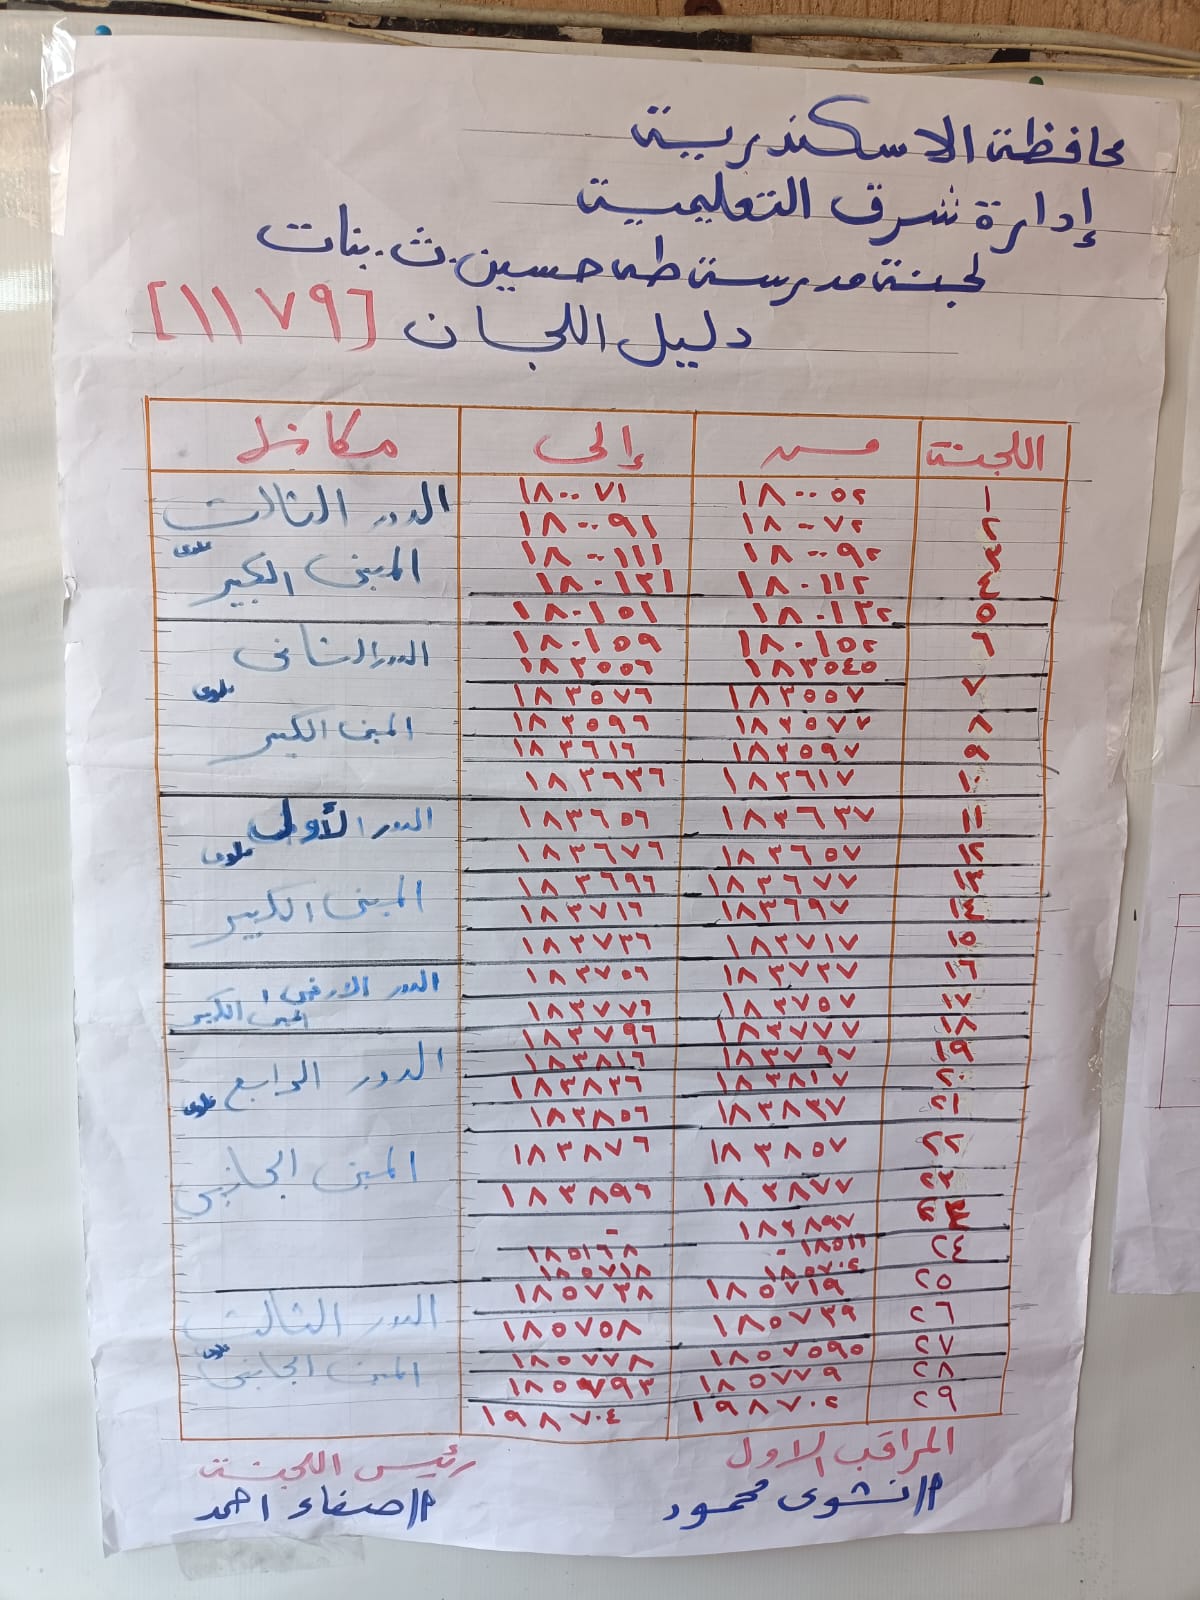 محافظة الاسكندرية
إدارة شرق التعليمية
لجنة مدرسة طه حسين. ث. بنات
دليل اللجان [١١٧٩]
اللجنة من إلى مكانها
١ ١٨٠٠٥٢ ١٨٠٠٧١ الدور الثالث
٢ ١٨٠٠٧٢ ١٨٠٠٩١ علوى
٣ ١٨٠٠٩٢ ١٨٠٠١١١ المبنى الكبير
٤ ١٨٠١١٢ ١٨٠١٣١
٥ ١٨٠١٣٢ ١٨٠١٥١
٦ ١٨٠١٥٢ ١٨٠١٥٩ الدور الثانى
١٨٣٥٤٥ ١٨٣٥٥٦
٧ ١٨٣٥٥٧ ١٨٣٥٧٦ علوى
٨ ١٨٣٥٧٧ ١٨٣٥٩٦ المبنى الكبير
٩ ١٨٣٥٩٧ ١٨٣٦١٦
١٠ ١٨٣٦١٧ ١٨٣٦٣٦
١١ ١٨٣٦٣٧ ١٨٣٦٥٦ الدور الأول
١٢ ١٨٣٦٥٧ ١٨٣٦٧٦ علوى
١٣ ١٨٣٦٧٧ ١٨٣٦٩٦
١٤ ١٨٣٦٩٧ ١٨٣٧١٦ المبنى الكبير
١٥ ١٨٣٧١٧ ١٨٣٧٣٦
١٦ ١٨٣٧٣٧ ١٨٣٧٥٦ الدور الارضى
١٧ ١٨٣٧٥٧ ١٨٣٧٧٦ المبنى الكبير
١٨ ١٨٣٧٧٧ ١٨٣٧٩٦
١٩ ١٨٣٧٩٧ ١٨٣٨١٦ الدور الرابع
٢٠ ١٨٣٨١٧ ١٨٣٨٣٦
٢١ ١٨٣٨٣٧ ١٨٣٨٥٦ علوى
٢٢ ١٨٣٨٥٧ ١٨٣٨٧٦ المبنى الجانبى
٢٣ ١٨٣٨٧٧ ١٨٣٨٩٦
١٨٣٨٩٧ -
٢٤ ١٨٥١٦٨
١٨٥٧٠٢ ١٨٥٧١٨
٢٥ ١٨٥٧١٩ ١٨٥٧٣٨
٢٦ ١٨٥٧٣٩ ١٨٥٧٥٨ الدور الثالث
٢٧ ١٨٥٧٥٩٥ ١٨٥٧٧٨ علوى
٢٨ ١٨٥٧٧٩ ١٨٥٧٩٣ المبنى الجانبى
٢٩ ١٩٨٧٠٢ ١٩٨٧٠٤
المراقب الاول رئيس اللجنة
أ/ نشوى محمود أ/ صفاء احمد